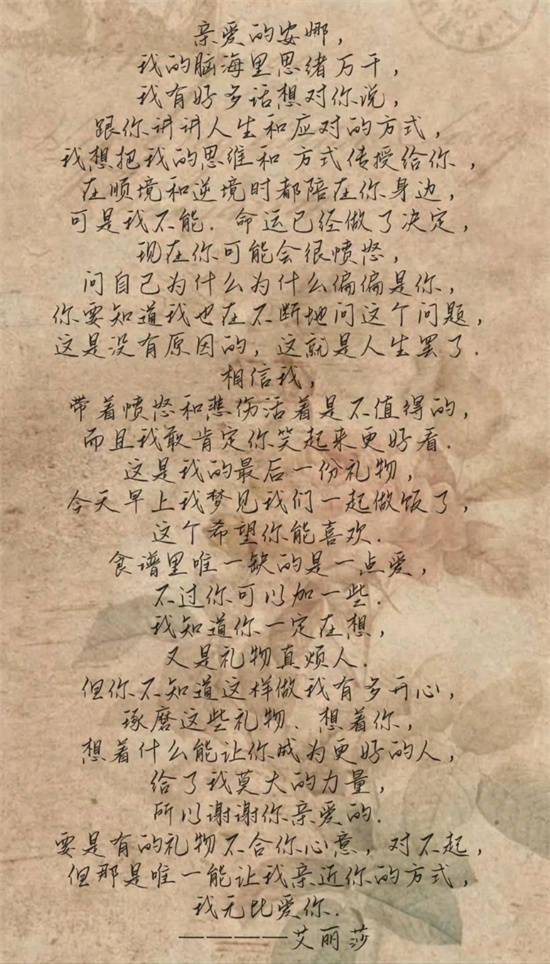 亲爱的安娜，
我的脑海里思绪万千，
我有好多话想对你说，
跟你讲讲人生和应对的方式，
我想把我的思维和 方式传授给你，
在顺境和逆境时都陪在你身边，
可是我不能. 命运已经做了决定，
现在你可能会很愤怒，
问自己为什么为什么偏偏是你，
你要知道我也在不断地问这个问题，
这是没有原因的，这就是人生罢了.
相信我，
带着愤怒和悲伤活着是不值得的，
而且我敢肯定你笑起来更好看.
这是我的最后一份礼物，
今天早上我梦见我们一起做饭了，
这个希望你能喜欢.
食谱里唯一缺的是一点爱，
不过你可以加一些.
我知道你一定在想，
又是礼物真烦人.
但你不知道这样做我有多开心，
琢磨这些礼物、想着你，
想着什么能让你成为更好的人，
给了我莫大的力量，
所以谢谢你亲爱的.
要是有的礼物不合你心意，对不起，
但那是唯一能让我亲近你的方式，
我无比爱你.
————艾丽莎